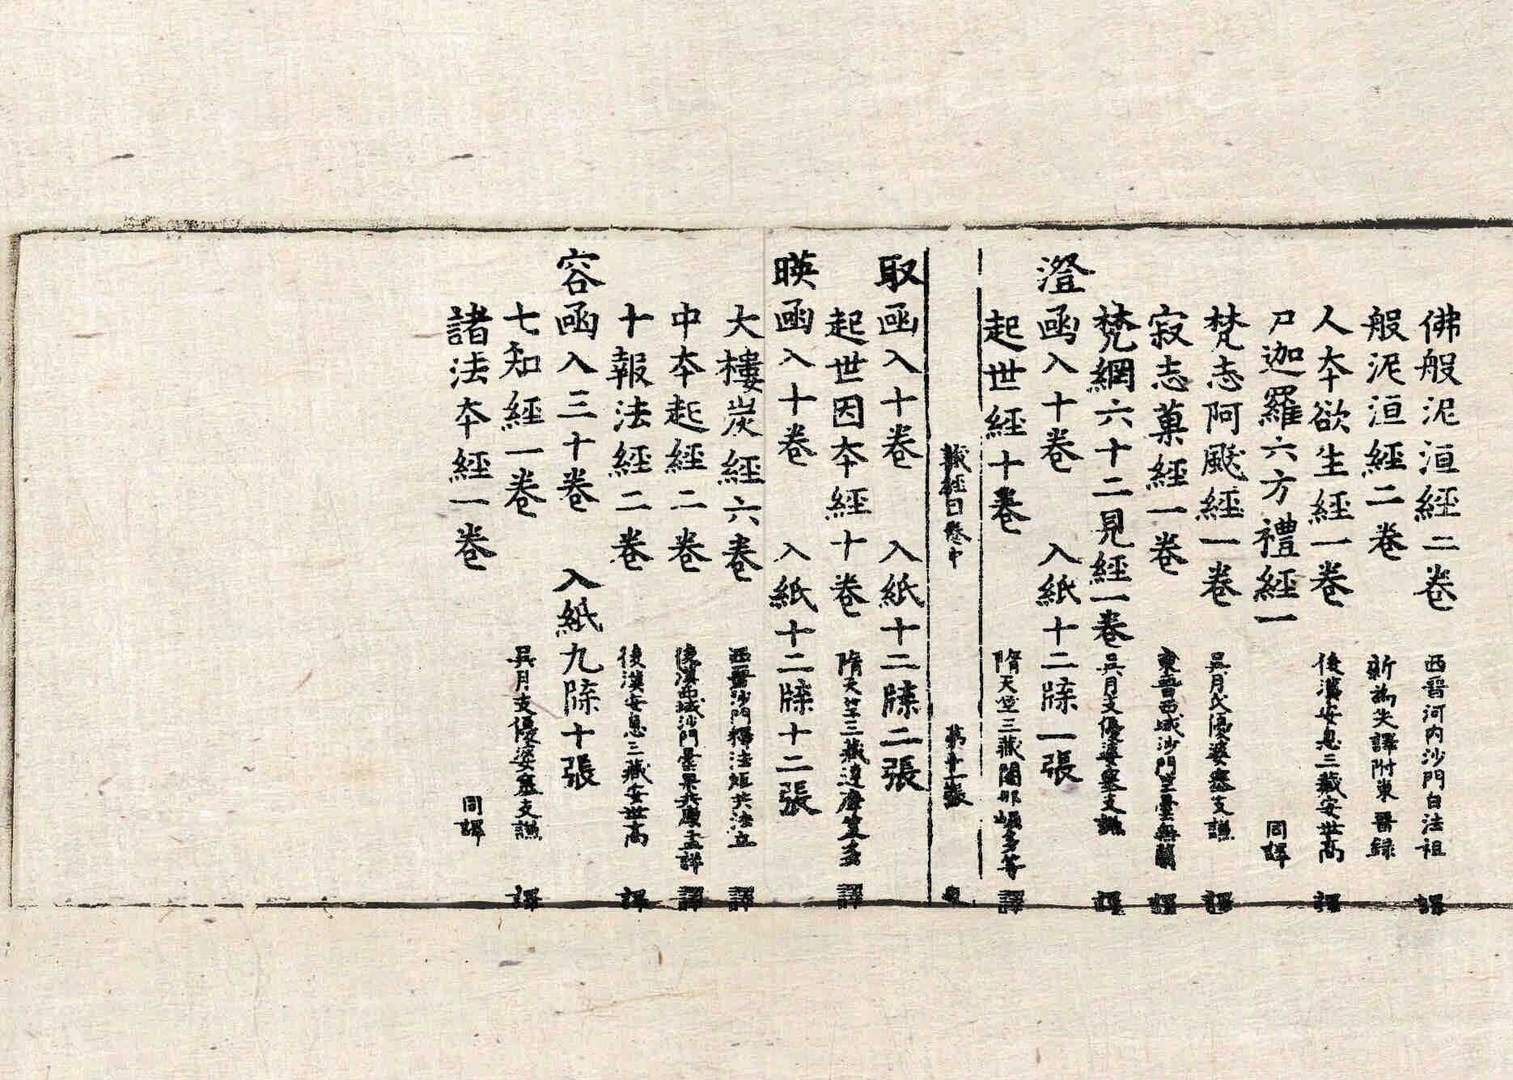 佛般泥洹經二卷 西晉河內沙門白法祖 譯
般泥洹經二卷 新為失譯附東晉録
人夲欲生經一卷 後漢安息三藏安世髙 譯
尸迦羅六方禮經一 同譯
梵志阿颰經一卷 吳月氏優婆塞支謙 譯
寂志菓經一卷 東晉西域沙門竺曇無蘭 譯
梵網六十二見經一卷 吳月支優婆塞支謙 譯
澄函入十卷 入紙十二牒一張
起世經十卷 隋天竺三藏闍那崛多等 譯
藏經目卷中 第十二張
取函入十卷 入紙十二牒二張
起世因夲經十卷 隋天竺三藏達摩笈多 譯
暎函入十卷 入紙十二牒十二張
大樓炭經六卷 西晉沙門釋法炬共法立 譯
中夲起經二卷 後漢西域沙門曇果共康孟詳 譯
十報法經二卷 後漢安息三藏安世髙 譯
容函入三十卷 入紙九牒十張
七知經一卷 吳月支優婆塞支謙 譯
諸法夲經一卷 同譯